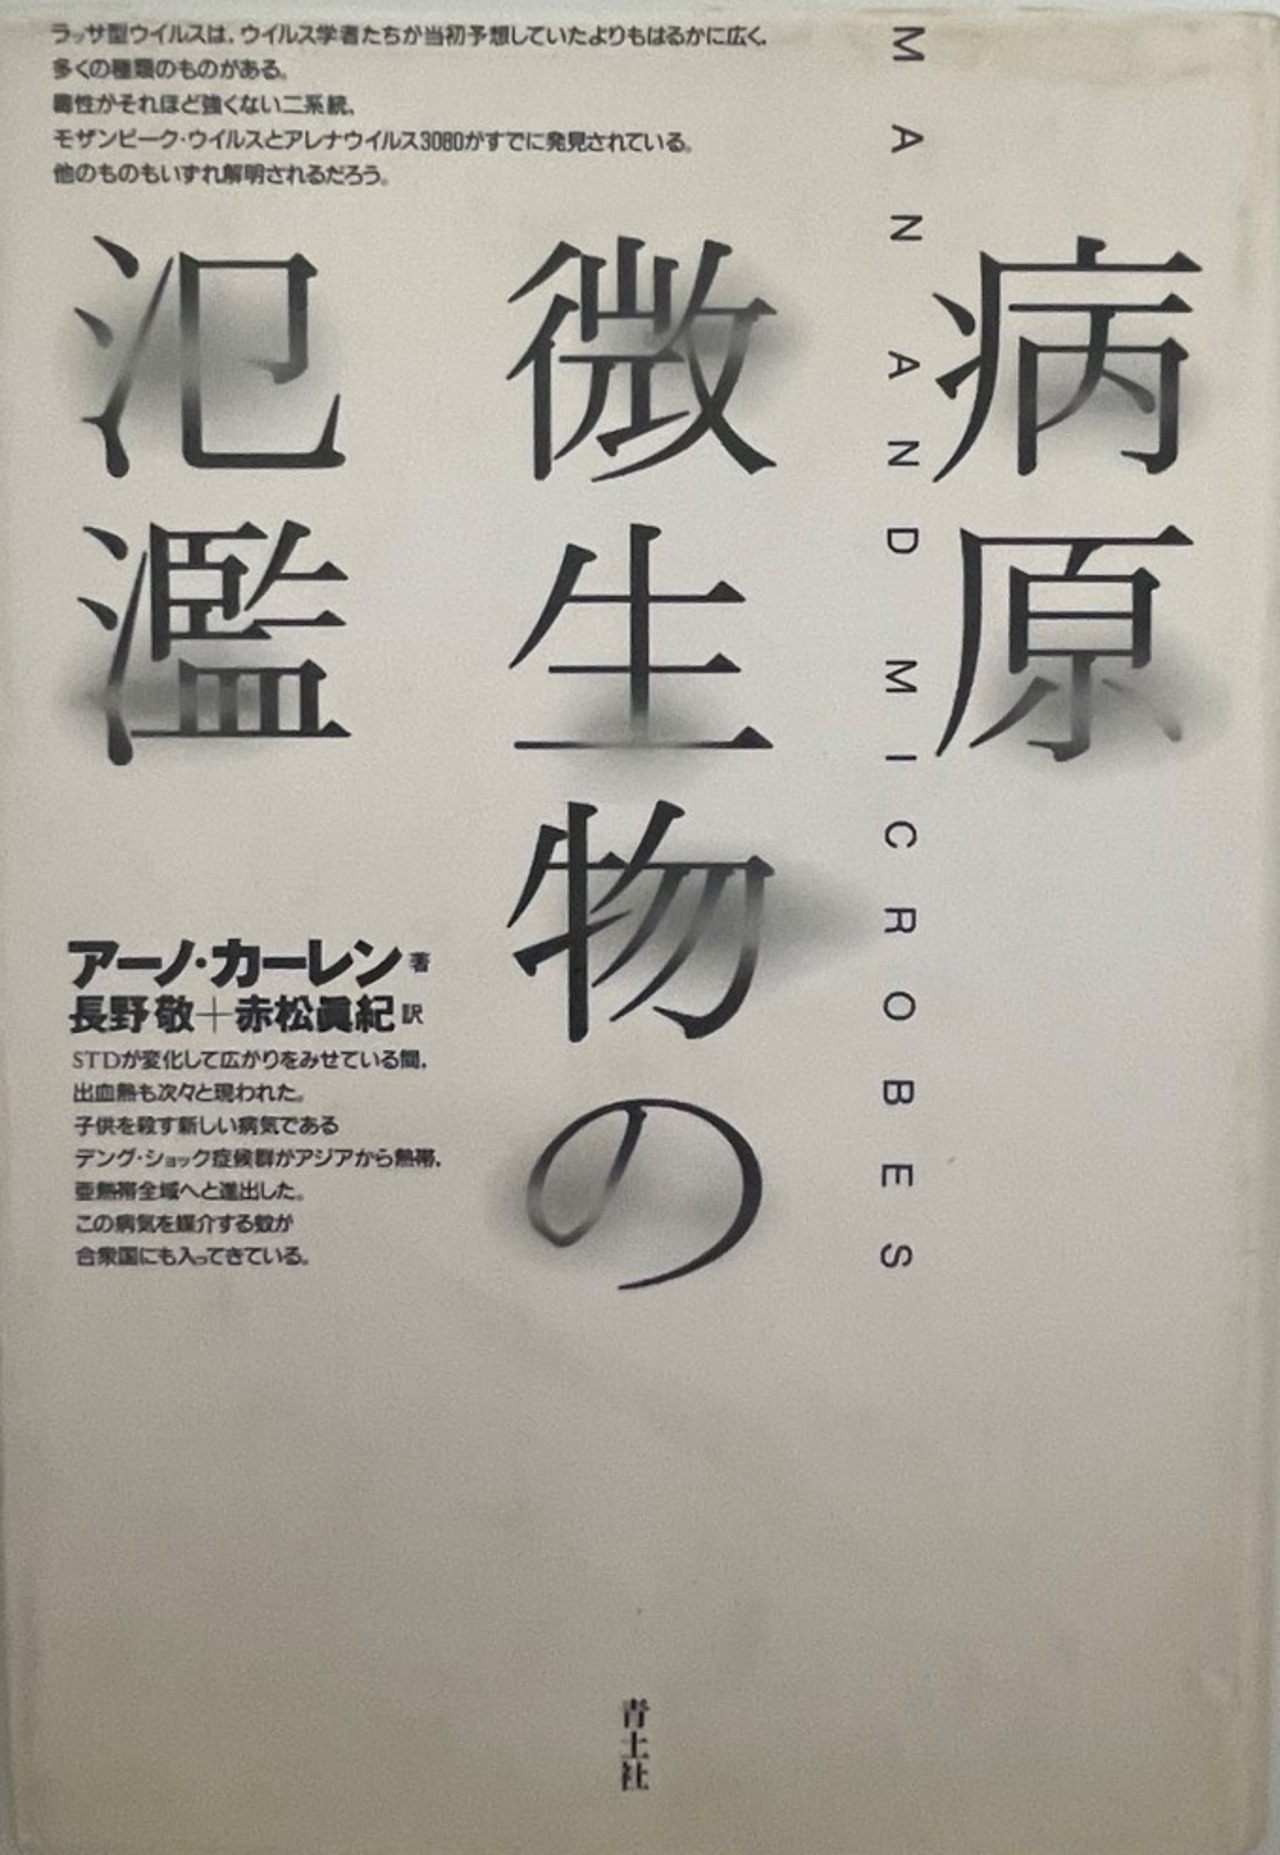 ラッサ型ウイルスは、ウイルス学者たちが当初予想していたよりもはるかに広く、
多くの種類のものがある。
毒性がそれほど強くない二系統、
モザンビーク・ウイルスとアレナウイルス3080がすでに発見されている。
他のものもいずれ解明されるだろう。
病原
MAN AND MICROBES
微生物の
氾濫
アーノ・カーレン 著
長野敬+赤松眞紀 訳
STDが変化して広がりをみせている間、
出血熱も次々と現われた。
子供を殺す新しい病気である
デング・ショック症候群がアジアから熱帯、
亜熱帯全域へと進出した。
この病気を媒介する蚊が
合衆国にも入ってきている。
青土社